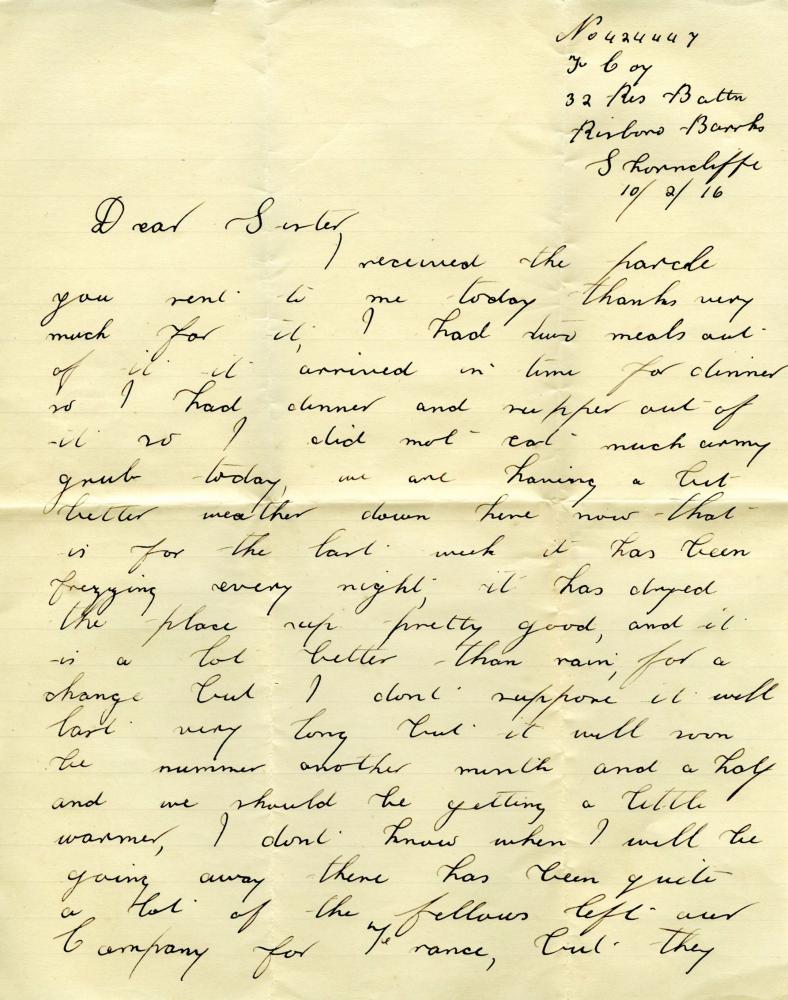 No 424447
F Coy
32 Res Battn
Risboro Barrks
Shorncliffe
10/2/16
Dear Sister,
I received the parcle
you sent to me today thanks very
much for it, I had two meals out
of it it arrived in time for dinner
so I had dinner and supper out of
it so I did not eat much army
grub today, we are having a bit
better weather down here now that
is for the last week it has been
frezzing every night, it has dryed
the place up pretty good, and it
is a lot better than rain, for a
change but I dont suppose it will
last very long but it will soon
be summer another month and a half
and we should be getting a little
warmer, I dont know when I will be
going away there has been quite
a lot of the fellows left our
Company for France, but they